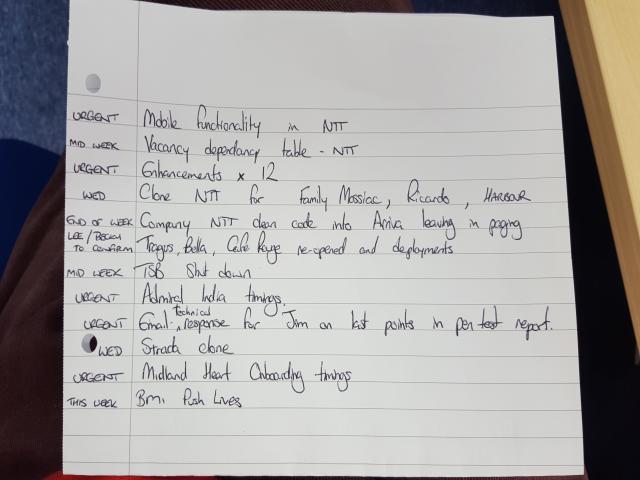 URGENT Mobile functionality in NTT
MID WEEK Vacancy dependancy table - NTT
URGENT Enhancements x 12
WED Clone NTT for Family Mossiac, Ricardo, HARBOUR
END OF WEEK Company NTT clean code into Arriva leaving in paging
LEE / BECKY TO CONFIRM Tragus, Bella, Cafe Rouge re-opened and deployments
MID WEEK TSB Shut down
URGENT Admiral India timings.
URGENT Email - technical response for Jim on last points in pen test report.
WED Strada clone
URGENT Midland Heart Onboarding timings
THIS WEEK Bmi Push Lives